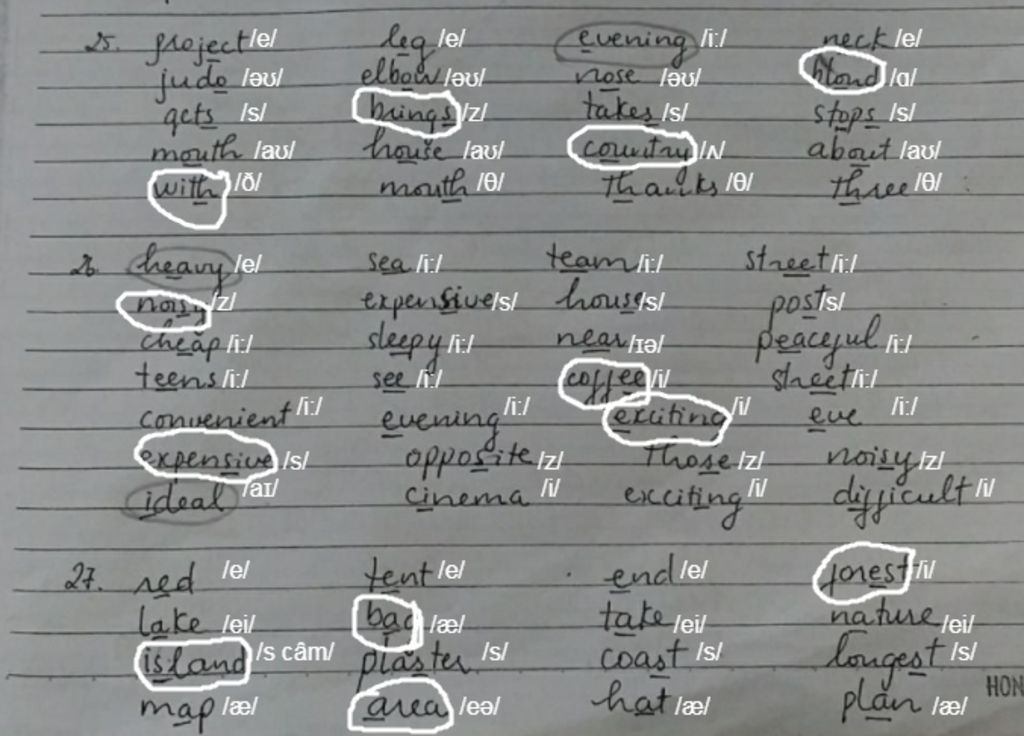 25. project /e/ leg /e/ evening /i:/ neck /e/
judo /əʊ/ elbow /əʊ/ nose /əʊ/ blond /ɑ/
gets /s/ brings /z/ takes /s/ stops /s/
mouth /aʊ/ house /aʊ/ country /ʌ/ about /aʊ/
with /ð/ mouth /θ/ thanks /θ/ three /θ/
26. heavy /e/ sea /i:/ team /i:/ street /i:/
noisy /z/ expensive /s/ house /s/ post /s/
cheap /i:/ sleepy /i:/ near /ɪə/ peaceful /i:/
teens /i:/ see /i:/ coffee /i/ street /i:/
convenient /i:/ evening /i:/ exciting /i/ eve /i:/
expensive /s/ opposite /z/ those /z/ noisy /z/
ideal /aɪ/ cinema /i/ exciting /i/ difficult /i/
27. red /e/ tent /e/ end /e/ forest /i/
lake /ei/ bag /æ/ take /ei/ nature /ei/
island /s câm/ plaster /s/ coast /s/ longest /s/
map /æ/ area /eə/ hat /æ/ plan /æ/
HON